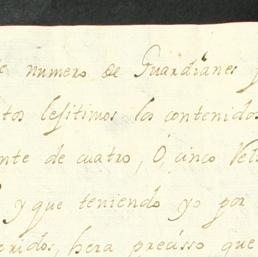 e numero de Guardianes
tos lesitimos los contenidos
nte de cuatro, O, cinco Vel
y que teniendo yo por
eridos, hera precisso que